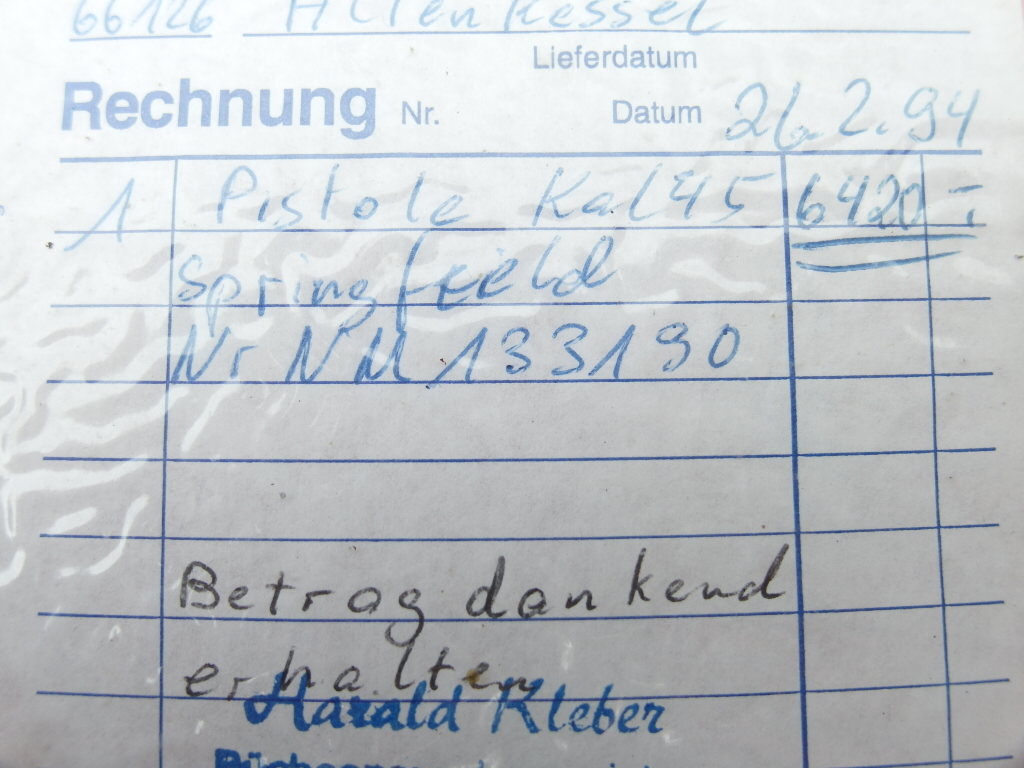 66126 Altenkessel
Lieferdatum
Rechnung Nr. Datum 26.2.94
1 Pistole Kal 45 6420 -
Springfield
Nr NM 133190
Betrag dankend
erhalten
Harald Kleber